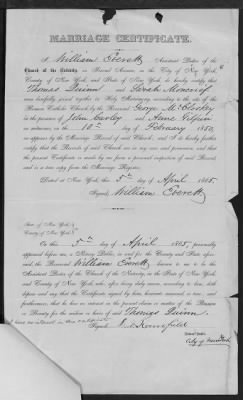 MARRIAGE CERTIFICATE.
I, William Everett Assistant Pastor of the
Church of the Nativity, in Second Avenue, in the City of New York,
County of New York, and State of New York, do hereby certify, that
Thomas Quinn and Sarah Moncrief
were lawfully joined together in Holy Matrimony, according to the rite of the
Roman Catholic Church by the Reverend George McCloskey
in the presence of John Curley and Anne Gilpin
as witnesses, on the 10th day of February 1850
as appears by the Marriage Record of said Church; and I do hereby further
certify that the Records of said Church are in my care and possession, and that
the present Certificate is made by me from a personal inspection of said Record,
and is a true copy from the Marriage Register.
Dated at New York, this 5th of April 1865.
Signed, William Everett
State of New York,
County of New York,
On this 5th day of April 1865, personally
appeared before me, a Notary Public, in and for the County and State afore-
said, the Reverend William Everett known to me to be the
Assistant Pastor of the Church of the Nativity, in the State of New York,
and County of New York, who, after being duly sworn, according to law, doth
depose and say that the Certificate signed by him, hereunto annexed, is true; and
furthermore, that he has no interest in the present claim or matter of the Pension
or Bounty for the widow or heirs of said Thomas Quinn.
Signed,
Notary Public,
City of New York